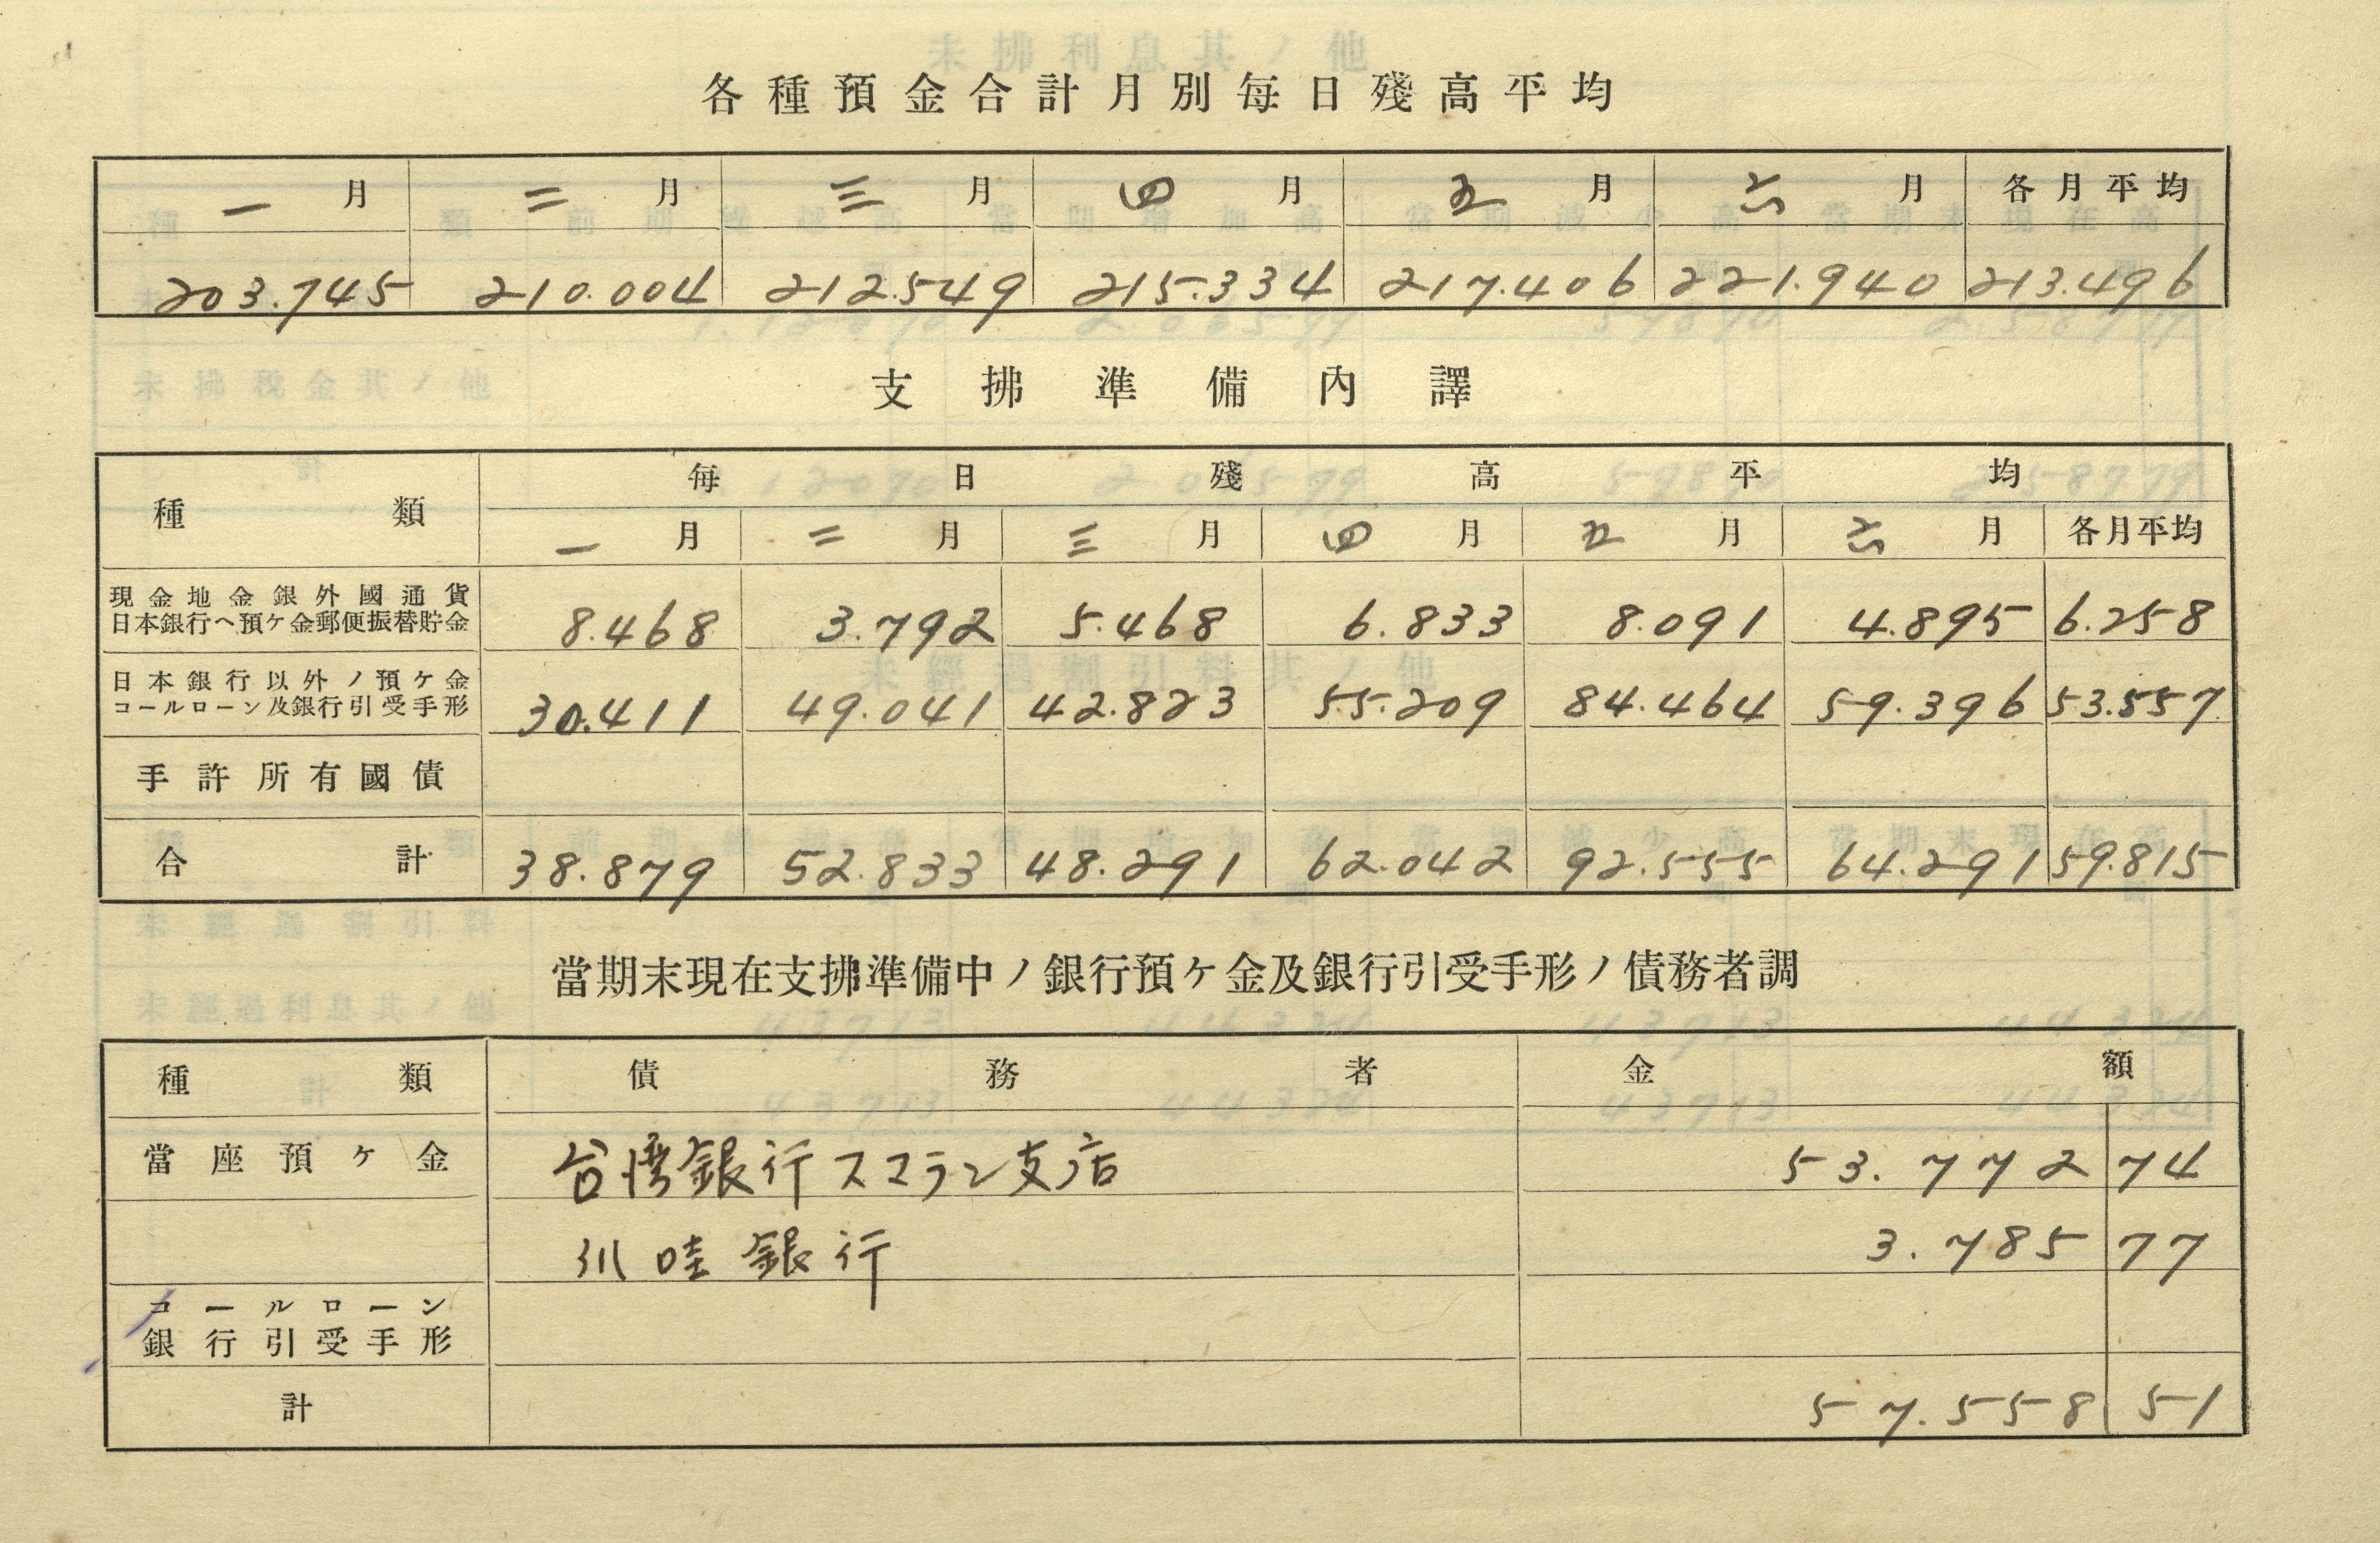 各種預金合計月別每日殘高平均
一月 二月 三月 四月 五月 六月 各月平均
203.745 210.004 212.549 215.334 217.406 221.940 213.496
支拂準備內譯
種類 每日殘高平均
一月 二月 三月 四月 五月 六月 各月平均
現金地金銀外國通貨
日本銀行ヘ預ケ金郵便振替貯金 8.468 3.792 5.468 6.833 8.091 4.895 6.258
日本銀行以外ノ預ケ金
コールローン及銀行引受手形 30.411 49.041 42.823 55.209 84.464 59.396 53.557
手許所有國債
合計 38.879 52.833 48.291 62.042 92.555 64.291 59.815
當期末現在支拂準備中ノ銀行預ケ金及銀行引受手形ノ債務者調
種類 債務者 金額
當座預ケ金 台湾銀行スマラン支店 53.772 74
爪哇銀行 3.785 77
コールローン
銀行引受手形
計 57.558 51